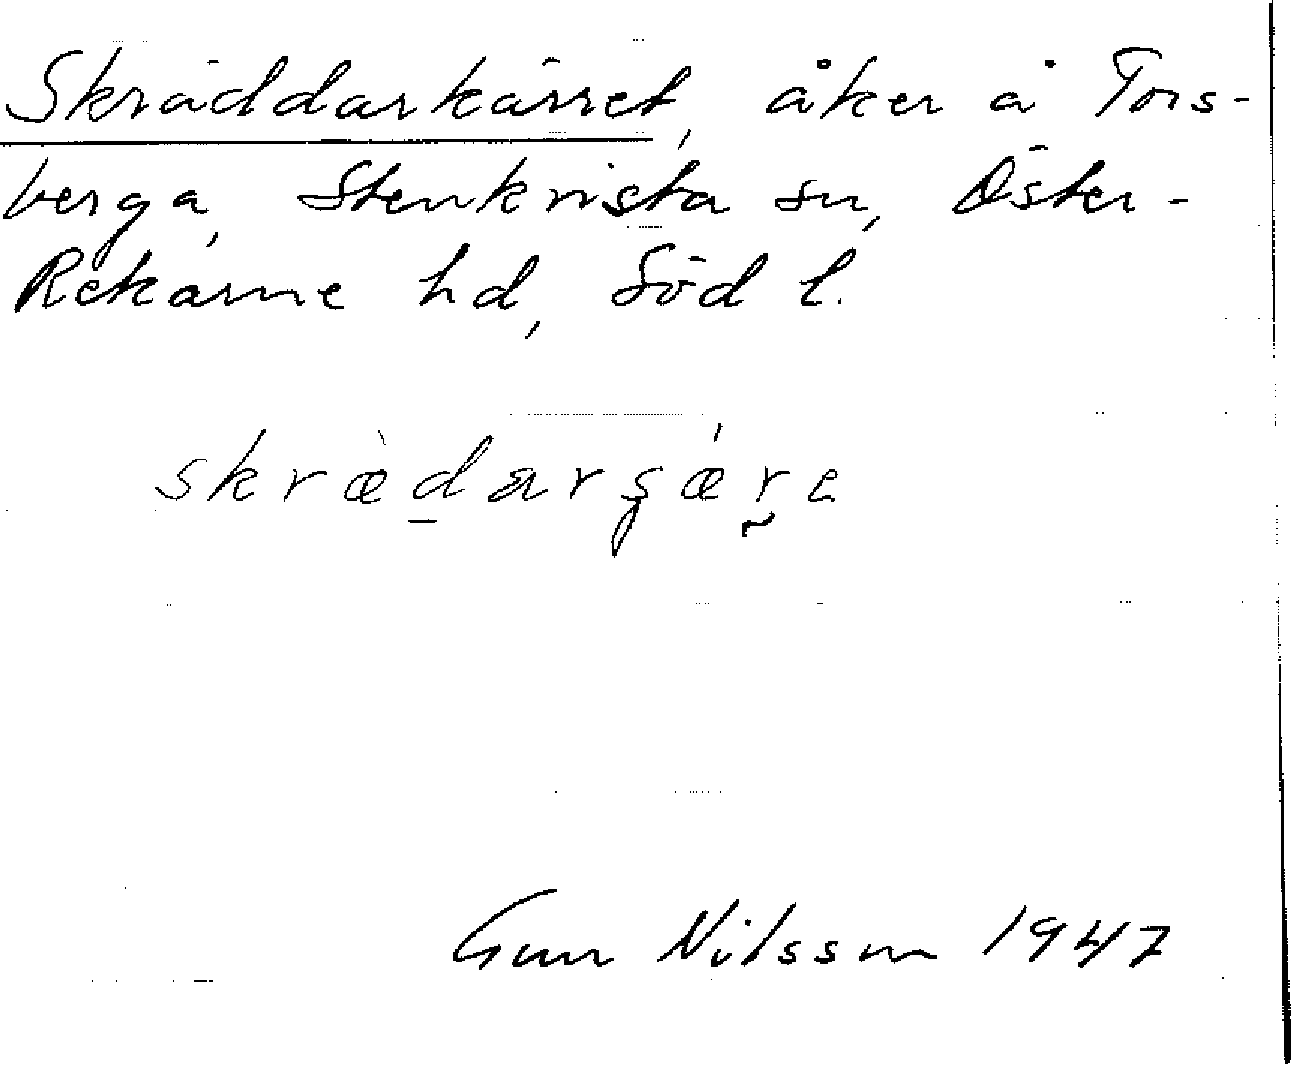 Skräddarkärret, åker å Tors-
berga, Stenkvista sn, Öster-
Rekarne hd, Söd l.
skrædarʂære
Gun Nilsson 1947